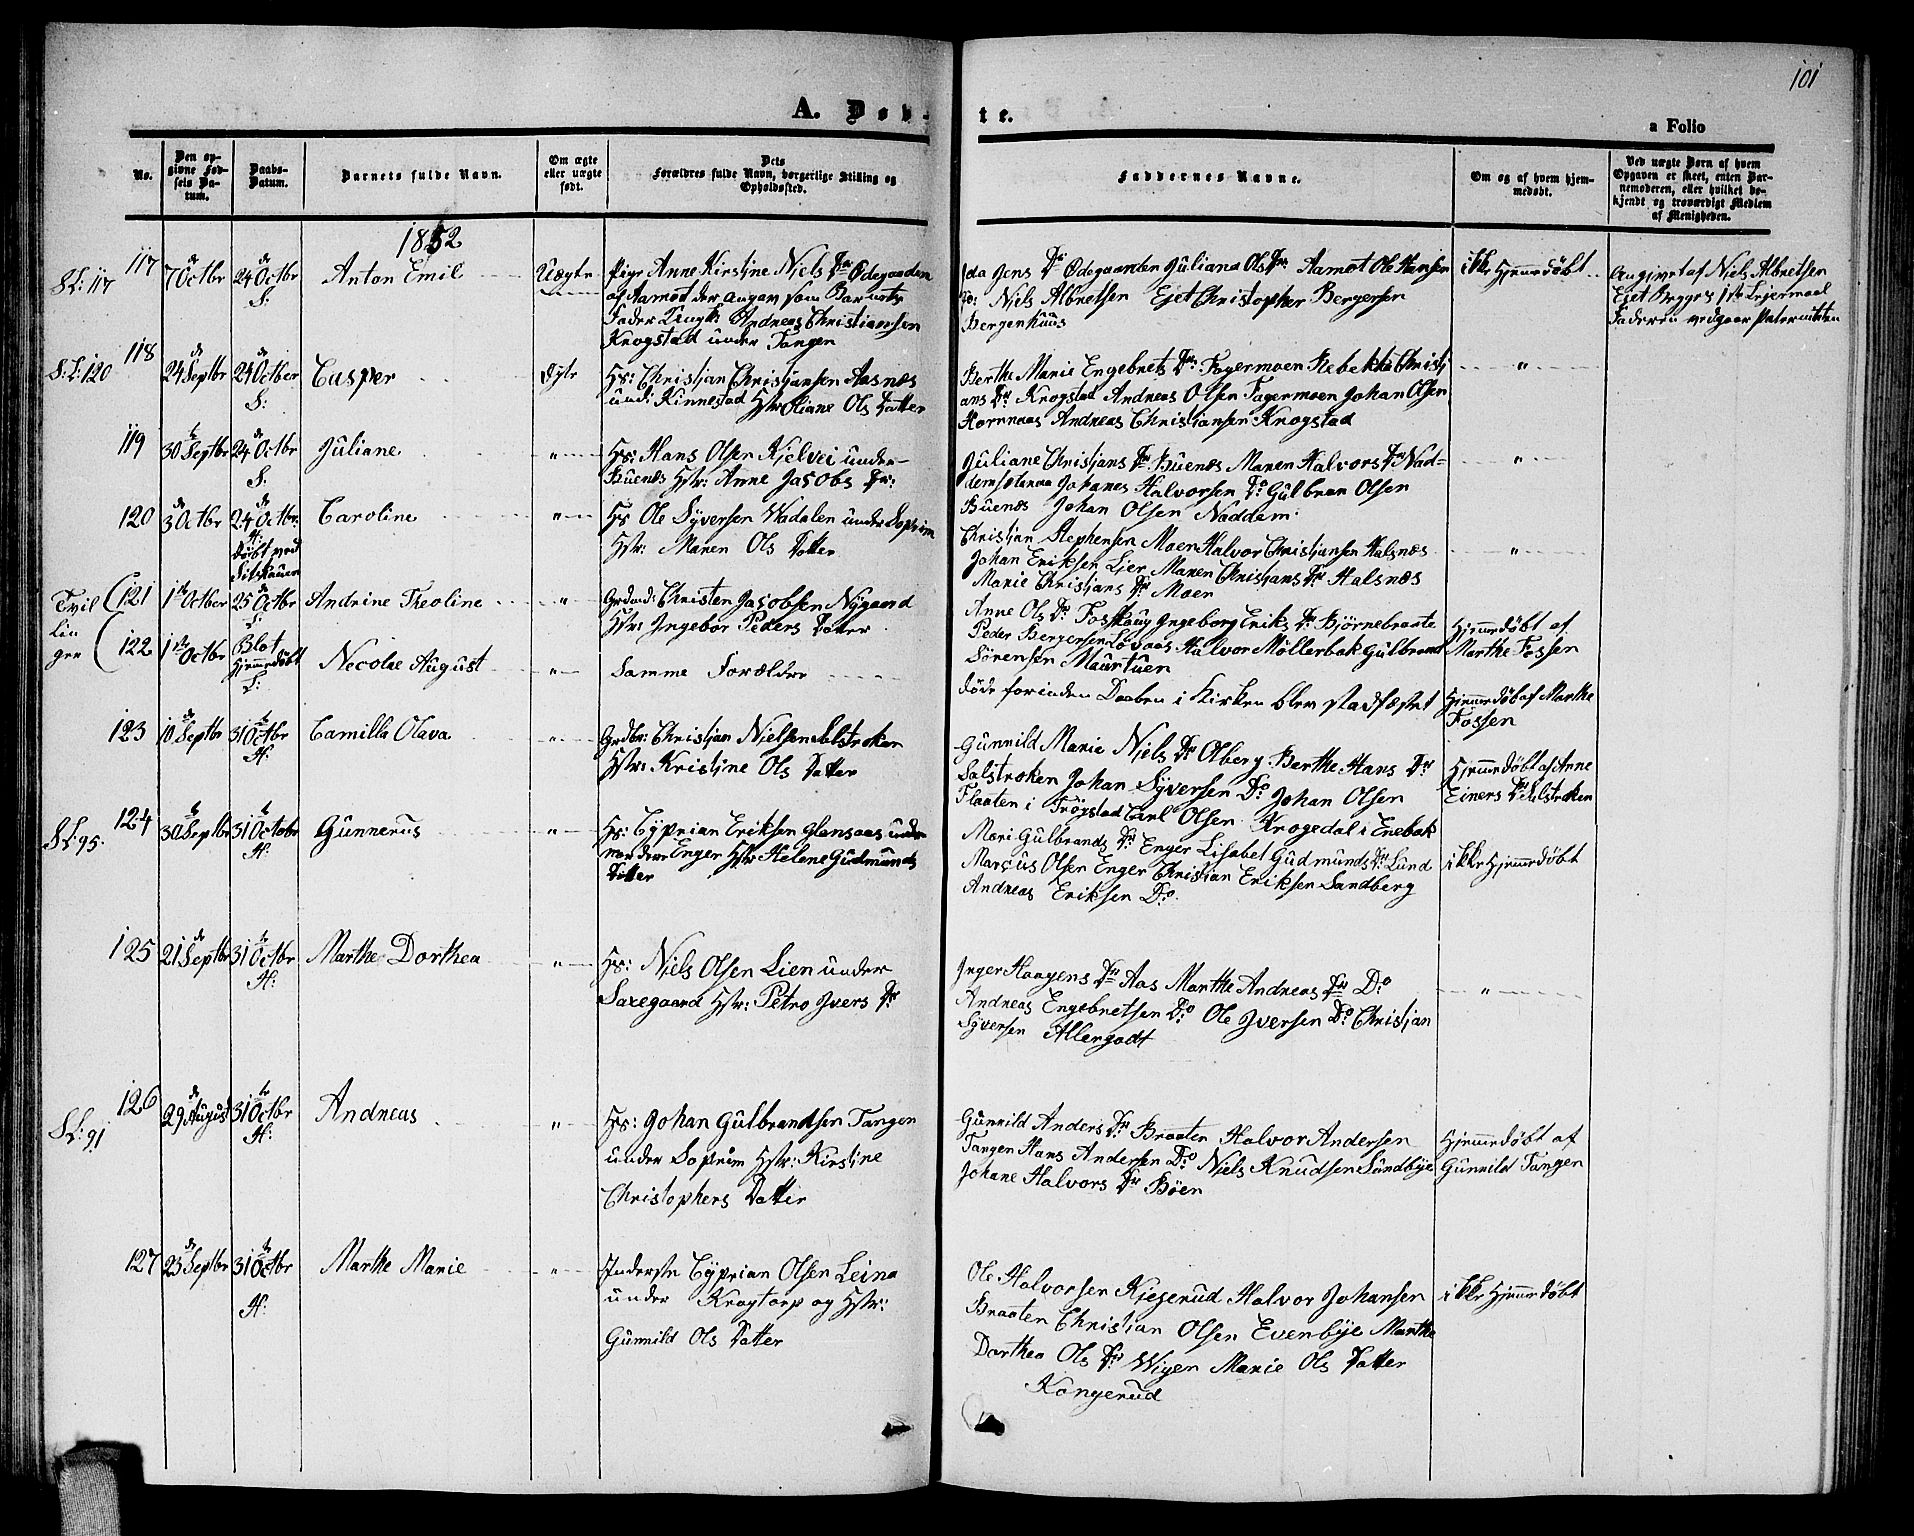 101
A. Døb-
te.
a Folio
No.
Den op-
givne Fød-
sels Da-
tum.
Daabs-
Datum.
Barnets fulde Navn.
Om ægte
eller uægte
født.
Dets
Forældres fulde Navn, borgerlige Stilling og
Opholdssted.
Faddernes Navne.
Om og af hvem hjem-
medøbt.
Ved uægte Børn af hvem
Opgaven er skeet, enten Bar-
nemoderen, eller hvilket be-
kjendt og troværdigt Medlem
af Menigheden.
1852
S.L: 117
117
7 de Octbr
24 de Octbr
S:
Anton Emil
Uægte
Pige Anne Kirstine Niels Dr Ødegaarden
af Aamot der angav som Barnets
Fader Ungk: Andreas Christiansen
Krogstad under Tangen
Ida Jens Dr Ødegaarden Juliana Ols Dr Aamot Ole Hansen
Do: Niels Albretsen Ejet Christopher Bergersen
Bergenhuus
ikke Hjemmedøbt
Angivet af Niels Albretsen
Ejet Begges 1ste Lejermaal
Faderen vedgaar Paterniteten
S.L: 120
118
24 de Septbr
24 de Octber
S:
Casper
Ægte
Hs: Christian Christiansen Aasnæs
und: Kinnestad Hstr Oliane Ols Datter
Berthe Marie Engebrets Dr: Fagermoen Rebekka Christi
ans Dr Krogstad Andreas Olsen Fagermoen Johan Olsen
Hornnæs Andreas Christiansen Krogstad
"
119
30 te Septbr
24 de Octbr
S:
Juliane
"
Hs: Hans Olsen Kjelvei under
Buenæs Hstr: Anne Jacobs Dr:
Juliane Christians Dr Buenæs Maren Halvors Dr Nad=
demstanna Johanes Halvorsen Do Gulbran Olsen
Buenæs Johan Olsen Naddem.
"
120
3 de Octbr
24 de Octbr:
H:
døbt ved
Sitskauen
Caroline
"
Hs Ole Syversen Wadalen under Soprim
Hstr: Maren Ols Datter
Christian Stephensen Moer Halvor Christiansen Halsnæs
Johan Eriksen Lier Maren Christians Dr Halsnæs
Marie Christians Dr Moer
"
Tvil
lin
ger
121
1ste Octber
25 de Octbr
S:
Andrine Theoline
"
Grdmd: Christen Jacobsen Nygaard
Hstr: Ingebor Peders Datter
Anne Ols Dr: Fosshaug Ingeborg Eriks Dr Bjørnebraate
Peder Bergersen Lovaas Halvor Møllerbak Gulbrand
Sørensen Maurtuen
Hjemmedøbt af
Marthe Fossen
122
1ste Octbr
Blot
Hjemmedøbt
S:
Necolai August
"
Samme Forældre
døde forinden Daaben i Kirken blev stadfæstet
Hjemmedøbt af Marthe
Fossen
123
10 de Septbr
31 te Octbr
H:
Camilla Olava
"
Grdbr: Christian Nielsen Salstroken
Hstr: Kristine Ols Datter
Gunnild Marie Niels Dr Olberg. Berthe Hans Dr
Salstroken Johan Syversen Do Johan Olsen
Flaaten i Trøgstad Carl Olsen Krogedal i Enebak
Hjemmedøbt af Anne
Einers Dr Salstroken
S.L: 95.
124
30 te Septbr
31 te Octobr
H:
Gunnerus
"
Hs: Cyprian Eriksen Glensaas under
nordere Enger Hstr Helene Gudmunds
Datter
Mari Gulbrands Dr Enger Lisabet Gudmunds Dr Lund
Marcus Olsen Enger Christian Eriksen Sandberg
Andreas Eriksen Do
ikke Hjemmedøbt
125
21 de Septbr
31 te Octbr
H:
Marthe Dorthea
"
Hs: Niels Olsen Lien under
Saxegaard Hstr: Petro Ivers Dr
Inger Haagens Dr Aas Marthe Andreas Dr Do
Andreas Engebretsen Do Ole Iversen Do Christian
Syversen Allergodt
"
S.L: 91
126
29 de August
31 te Octbr
H:
Andreas
"
Hs: Johan Gulbrandsen Tangen
under Soprim Hstr: Kirstine
Christophers Datter
Gunnild Anders Dr Braaten Halvor Andersen
Tangen Hans Andersen Do Niels Knudsen Sundbye
Johane Halvors Dr Böen
Hjemmedøbt af
Gunnild Tangen
127
23 de Septbr
31 te Octbr
H:
Marthe Marie
"
Inderste Cyprian Olsen Leina
under Krogtorp og Hstr:
Gunnild Ols Datter
Ole Halvorsen Kjegerud Halvor Johansen
Braaten Christian Olsen Evenbye Marthe
Dorthea Ols Dr Wiger Marie Ols Datter
Kongerud
ikke Hjemmedøbt